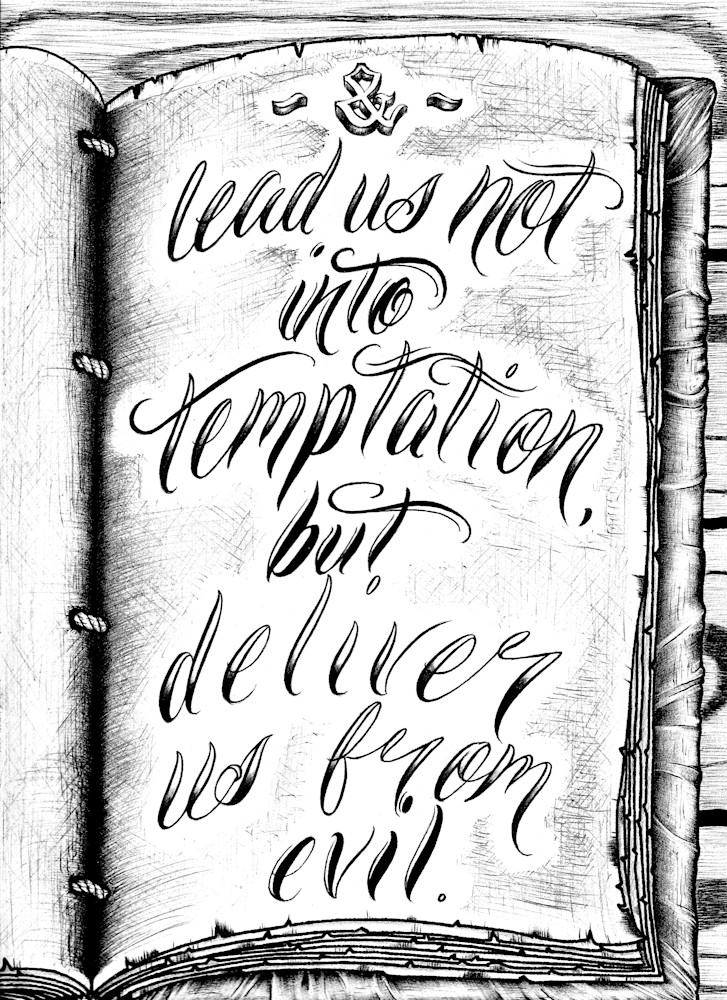 - & -
lead us not
into
temptation,
but
deliver
us from
evil.